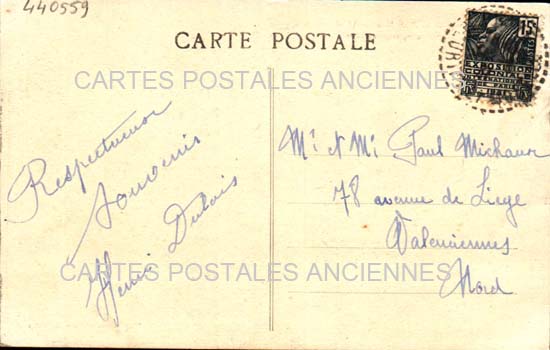 440559
CARTE POSTALE
CARTES POSTALES ANCIENNES
Respectueux
souvenirs
Henri Dubois
Mr et Me Paul Michaux
78 avenue de Liege
Valenciennes
Nord
CARTES POSTALES ANCIENNES
15
EXPOSITION
COLONIALE
INTERNATIONALE
PARIS
1931
POSTES